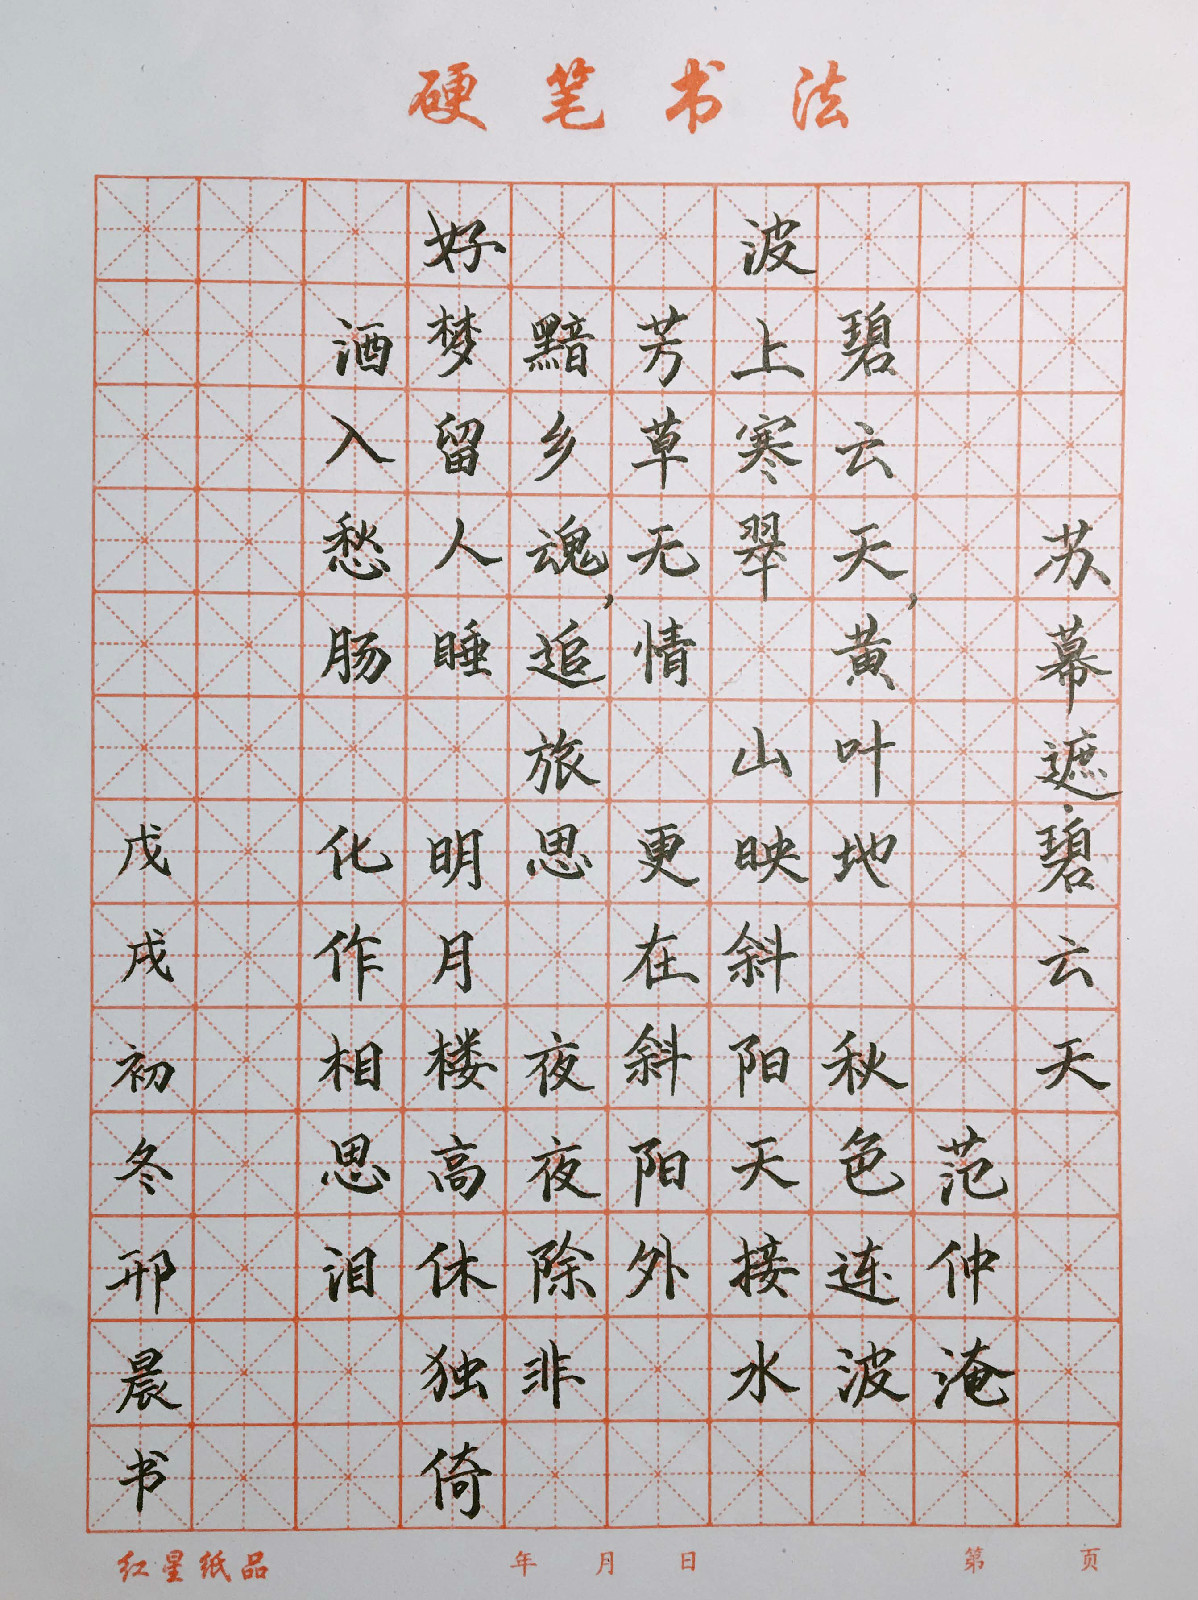 硬笔书法
苏幕遮·碧云天
范仲淹
碧云天，黄叶地 秋色连波
波上寒翠 山映斜阳天接水
芳草无情 更在斜阳外
黯乡魂，追旅思 夜夜除非
好梦留人睡 明月楼高休独倚
酒入愁肠 化作相思泪
戊戌初冬邢晨书
红星纸品 年 月 日 第 页